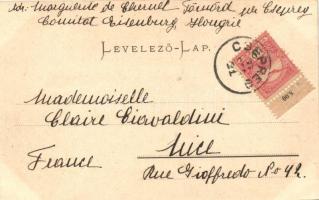 Marguerite de Chernel Tömörd per Csepreg
Comitat Eisenburg, Hongrie
LEVELEZŐ-LAP.
CSEPREG
Mademoiselle
Claire Ciervaldini
Nice
France
Rue Gioffredo No 42.